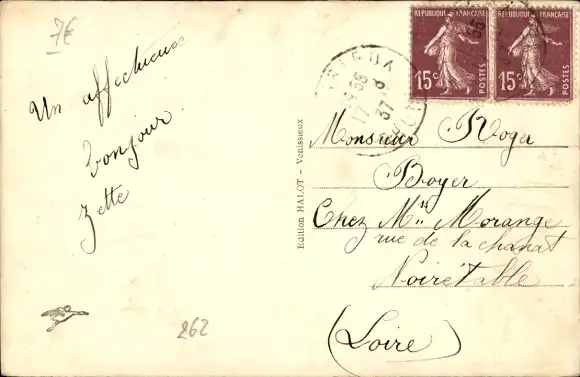 7€
Un affectueux
bonjour
zette
262
Edition HALOT - Venissieux
RÉPUBLIQUE FRANÇAISE
15c
POSTES
RÉPUBLIQUE FRANÇAISE
15c
POSTES
37
Monsieur Roger
Boyer
Chez Mme Morange
rue de la chanat
Noirétable
(Loire)